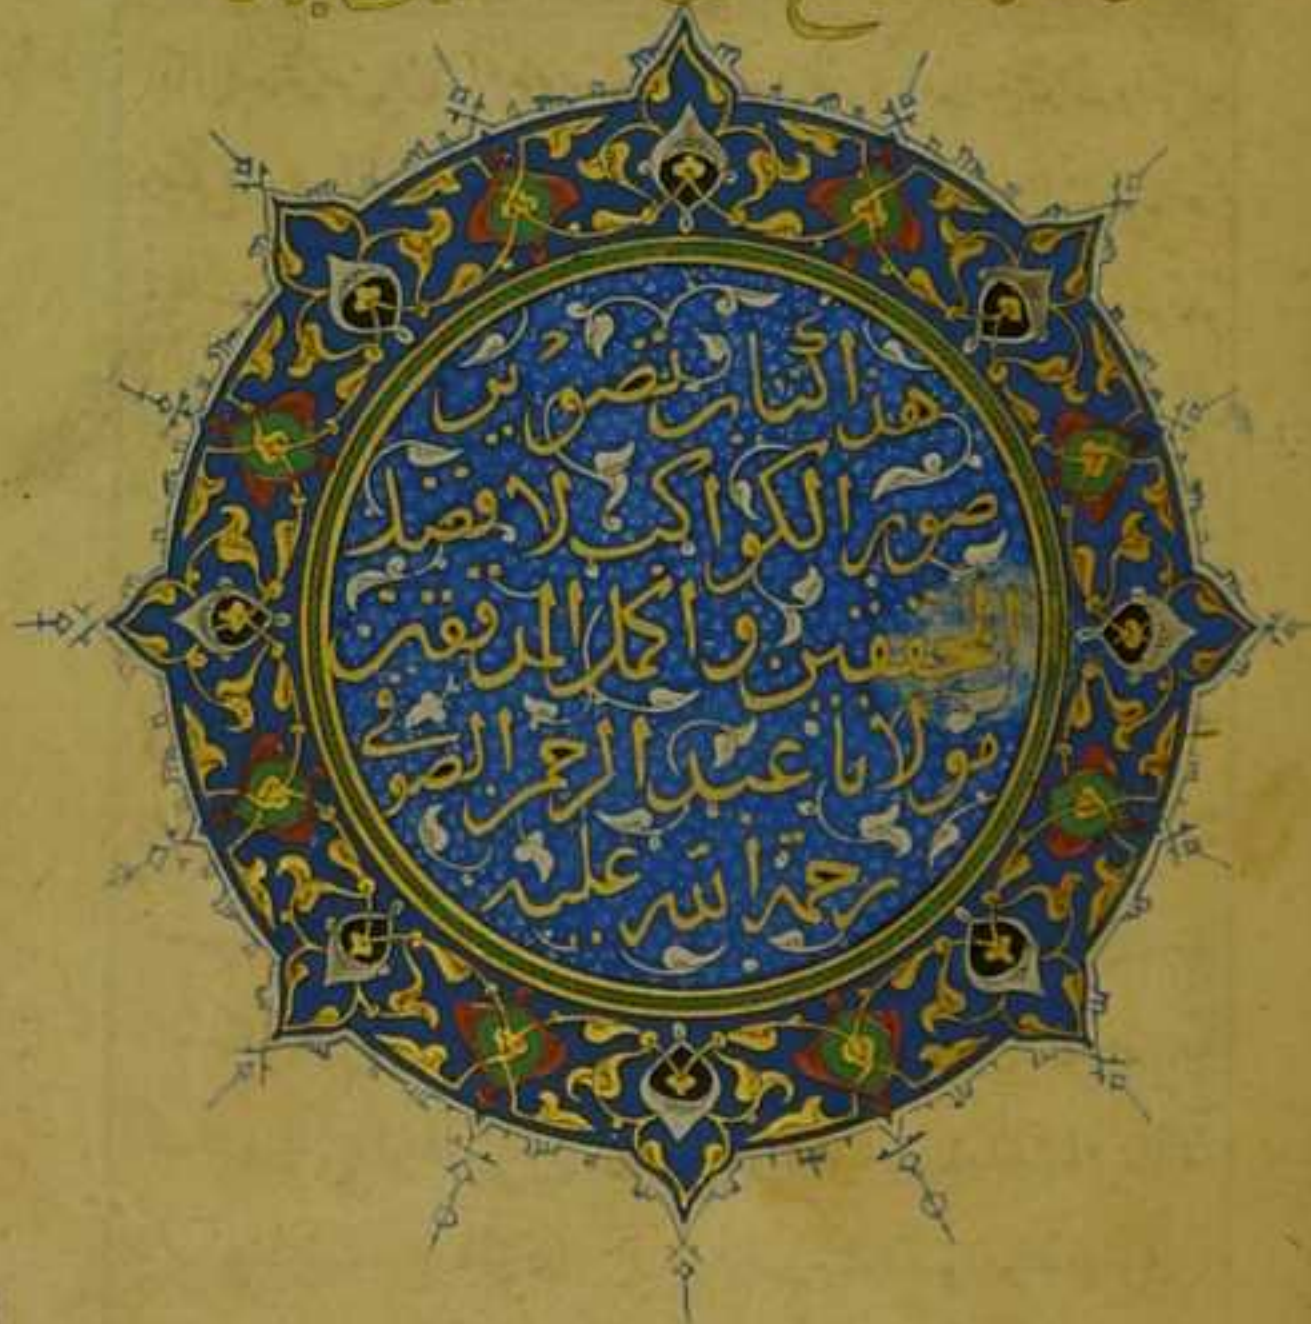 هذا كتاب تصوير
صور الكواكب لافضل
المحققين واكمل المدققين
مولانا عبد الرحمن الصوفي
رحمة الله عليه